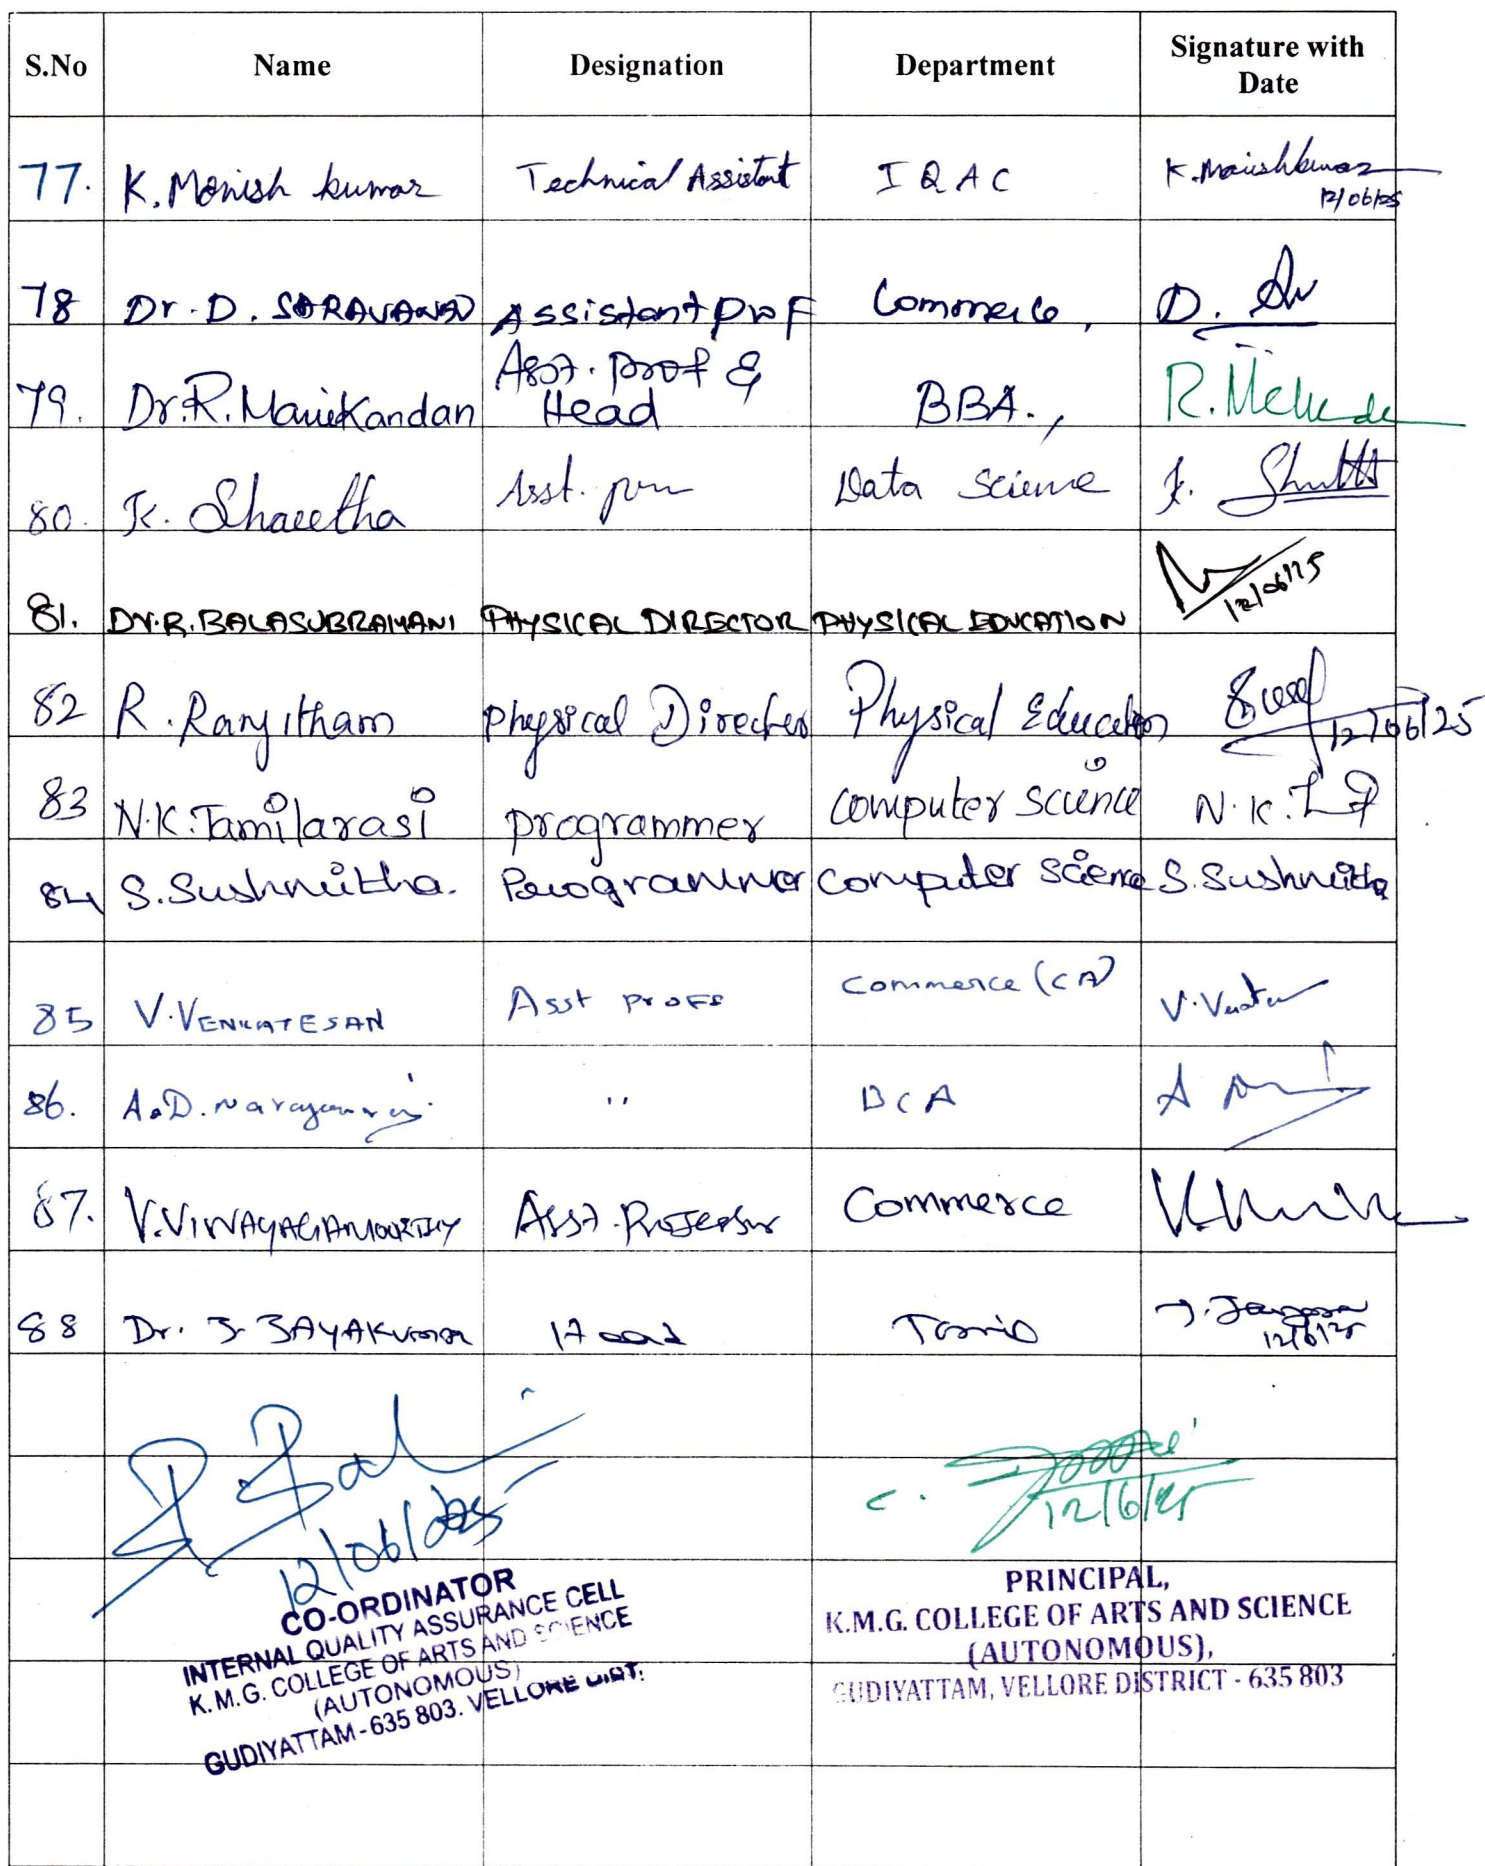 S.No Name Designation Department Signature with Date
77. K. Monish kumar Technical Assistant IQAC K. Monishkumar 12/06/25
78 Dr. D. SARAVANAN Assistant Prof Commerce, D.
79. Dr. R. Manikandan Asst. Prof & Head BBA., R.
80. K. Asst. Data Science K.
81. Dr. R. BALASUBRAMANI PHYSICAL DIRECTOR PHYSICAL EDUCATION 12/06/25
82 R. Ranjitham Physical Director Physical Education 12/06/25
83 N.K. Tamilarasi programmer Computer Science N.K.
84 S. Sushmitha. Programmer Computer Science S. Sushmitha
85 V. VENKATESAN Asst Profs Commerce (CA) V.
86. A.D. " BCA A
87. V. VINAYAGAMOORTHY Asst. Professor Commerce
88 Dr. J. JAYAKUMAR Head Tamil J. 12/6/25
12/06/2025
CO-ORDINATOR
INTERNAL QUALITY ASSURANCE CELL
K.M.G. COLLEGE OF ARTS AND SCIENCE
(AUTONOMOUS)
GUDIYATTAM - 635 803. VELLORE DIST.
12/6/25
PRINCIPAL,
K.M.G. COLLEGE OF ARTS AND SCIENCE
(AUTONOMOUS),
GUDIYATTAM, VELLORE DISTRICT - 635 803